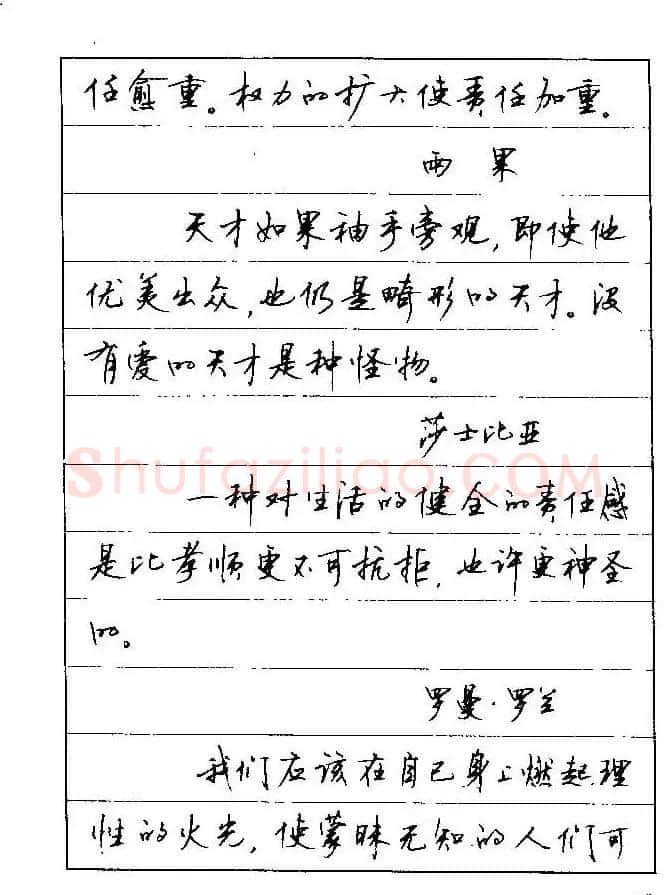 任愈重。权力的扩大使责任加重。
雨果
天才如果袖手旁观,即使他
优美出众,也仍是畸形的天才。没
有爱的天才是种怪物。
莎士比亚
ShufaziliaO.COM
一种对生活的健全的责任感
是比孝顺更不可抗拒,也许更神圣
的。
罗曼·罗兰
我们应该在自己身上燃起理
性的火光,使蒙昧无知的人们可